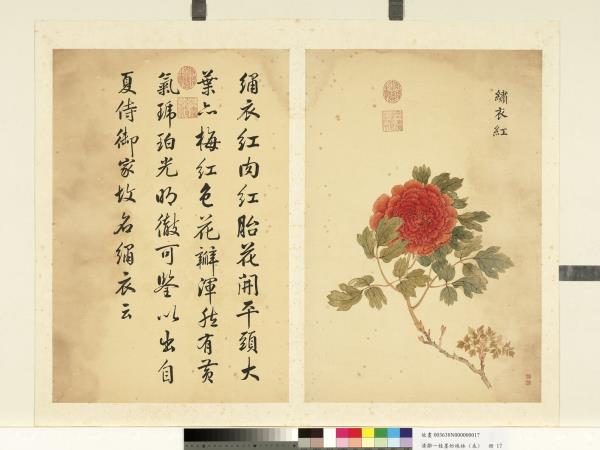 繡衣紅
繡衣紅肉紅胎花開平頭大
葉亦梅紅色花瓣渾然有黃
氣琥珀光明徹可鑒以出自
夏侍御家故名繡衣云
故畫 003638N000000017
清鄒一桂墨妙珠林 冊 17